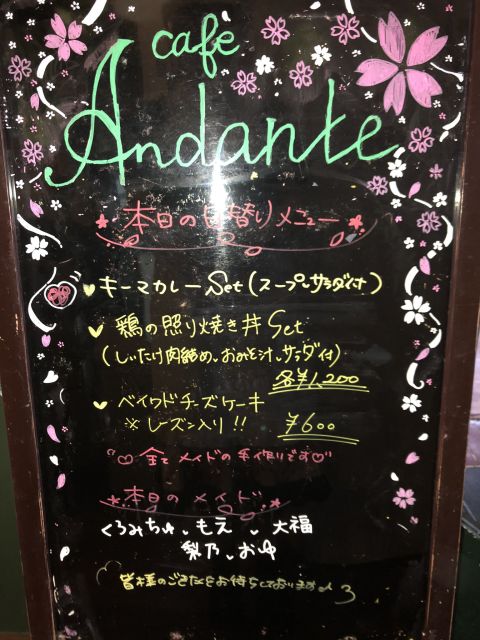 cafe
Andante
本日の日替りメニュー
キーマカレー Set (スープ、サラダ付)
鶏の照り焼き丼 Set
(しいたけ肉詰め、おみそ汁、サラダ付)
各¥1,200
ベイクドチーズケーキ
※レーズン入り!! ¥600
全て メイドの手作りです
本日のメイド
くるみちゅ、もえ、大福
梨乃、おゆ
皆様のごきたくをお待ちしております♪